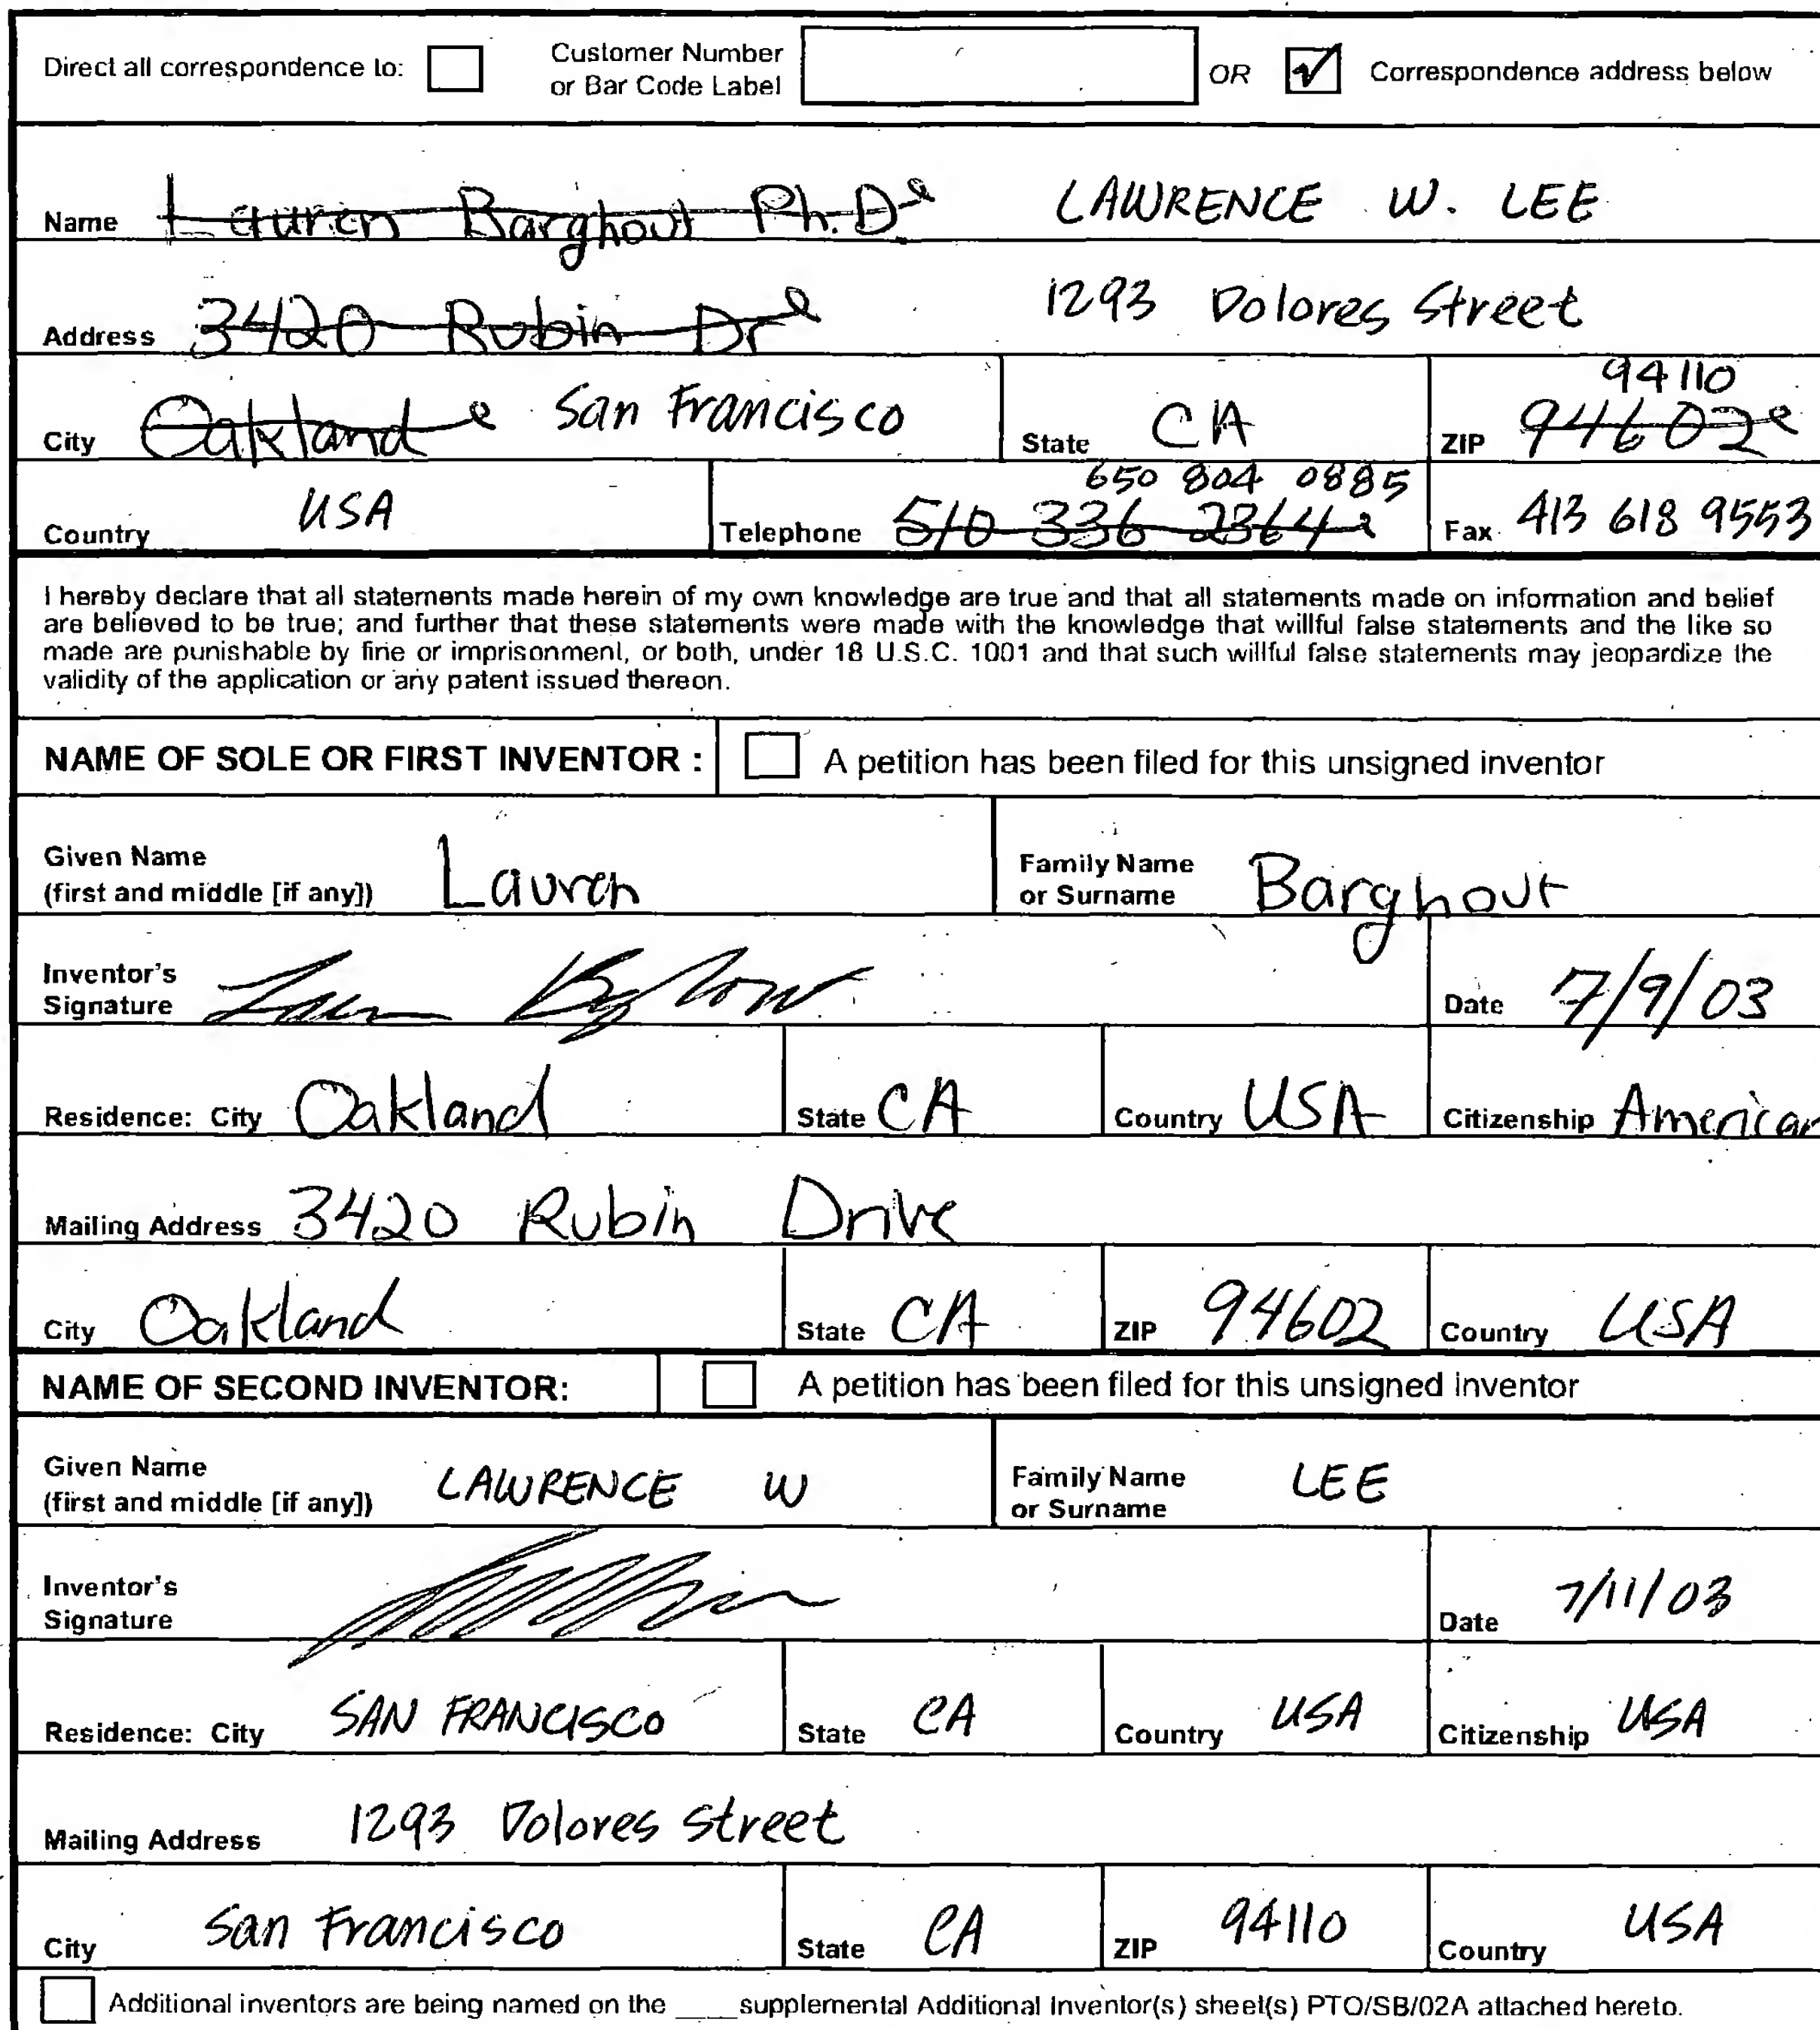 Direct all correspondence to: Customer Number or Bar Code Label OR Correspondence address below
Name Lauren Barghout Ph.D LAWRENCE W. LEE
Address 3420 Rubin Dr 1293 Dolores Street
City Oakland San Francisco State CA ZIP 94602 94110
Country USA Telephone 510 336 2364 650 804 0885 Fax 413 618 9553
I hereby declare that all statements made herein of my own knowledge are true and that all statements made on information and belief
are believed to be true; and further that these statements were made with the knowledge that willful false statements and the like so
made are punishable by fine or imprisonment, or both, under 18 U.S.C. 1001 and that such willful false statements may jeopardize the
validity of the application or any patent issued thereon.
NAME OF SOLE OR FIRST INVENTOR : A petition has been filed for this unsigned inventor
Given Name (first and middle [if any]) Lauren Family Name or Surname Barghout
Inventor's Signature Date 7/9/03
Residence: City Oakland State CA Country USA Citizenship American
Mailing Address 3420 Rubin Drive
City Oakland State CA ZIP 94602 Country USA
NAME OF SECOND INVENTOR: A petition has been filed for this unsigned inventor
Given Name (first and middle [if any]) LAWRENCE W Family Name or Surname LEE
Inventor's Signature Date 7/11/03
Residence: City SAN FRANCISCO State CA Country USA Citizenship USA
Mailing Address 1293 Dolores Street
City San Francisco State CA ZIP 94110 Country USA
Additional inventors are being named on the ____ supplemental Additional Inventor(s) sheet(s) PTO/SB/02A attached hereto.